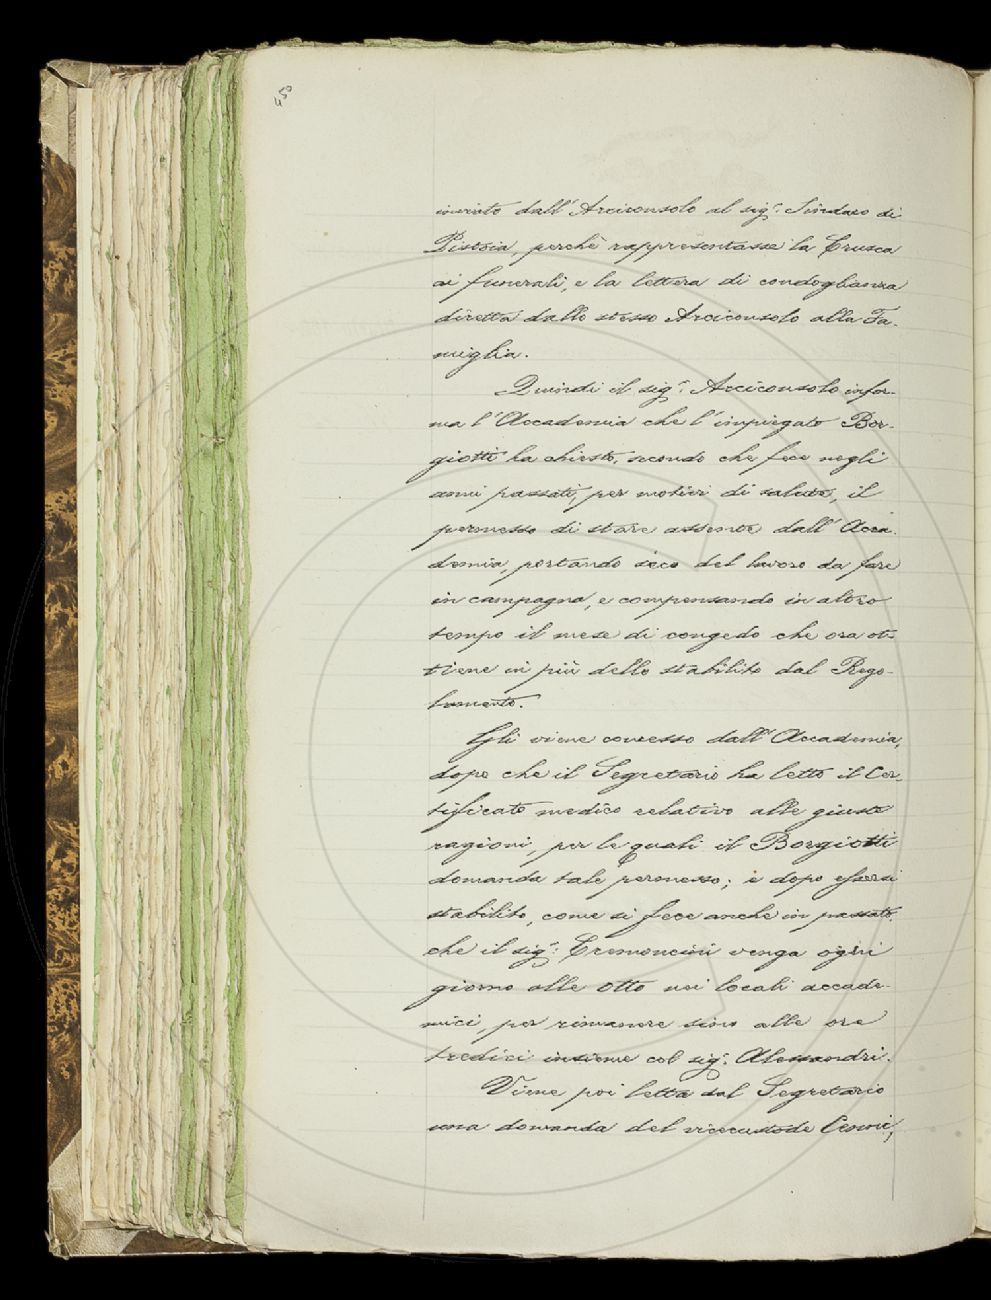 450
inviato dall'Arciconsolo al sig.r Sindaco di
Pistoia, perchè rappresentasse la Crusca
ai funerali, e la lettera di condoglianza
diretta dallo stesso Arciconsolo alla Fa-
miglia.
Quindi il sig.r Arciconsolo infor-
ma l'Accademia che l'impiegato Bor-
giotti ha chiesto, secondo che fece negli
anni passati, per motivi di salute, il
permesso di stare assente dall'Acca-
demia, portando seco del lavoro da fare
in campagna, e compensando in altro
tempo il mese di congedo che ora ot-
tiene in più dello stabilito dal Rego-
lamento.
Gli viene concesso dall'Accademia,
dopo che il Segretario ha letto il Cer-
tificato medico relativo alle giuste
ragioni, per le quali il Borgiotti
domanda tale permesso; e dopo essersi
stabilito, come si fece anche in passato,
che il sig.r Cremoncini venga ogni
giorno alle otto nei locali accade-
mici, per rimanere sino alle ore
tredici insieme col sig.r Alessandri.
Viene poi letta dal Segretario
una domanda del vicecustode Cenni,